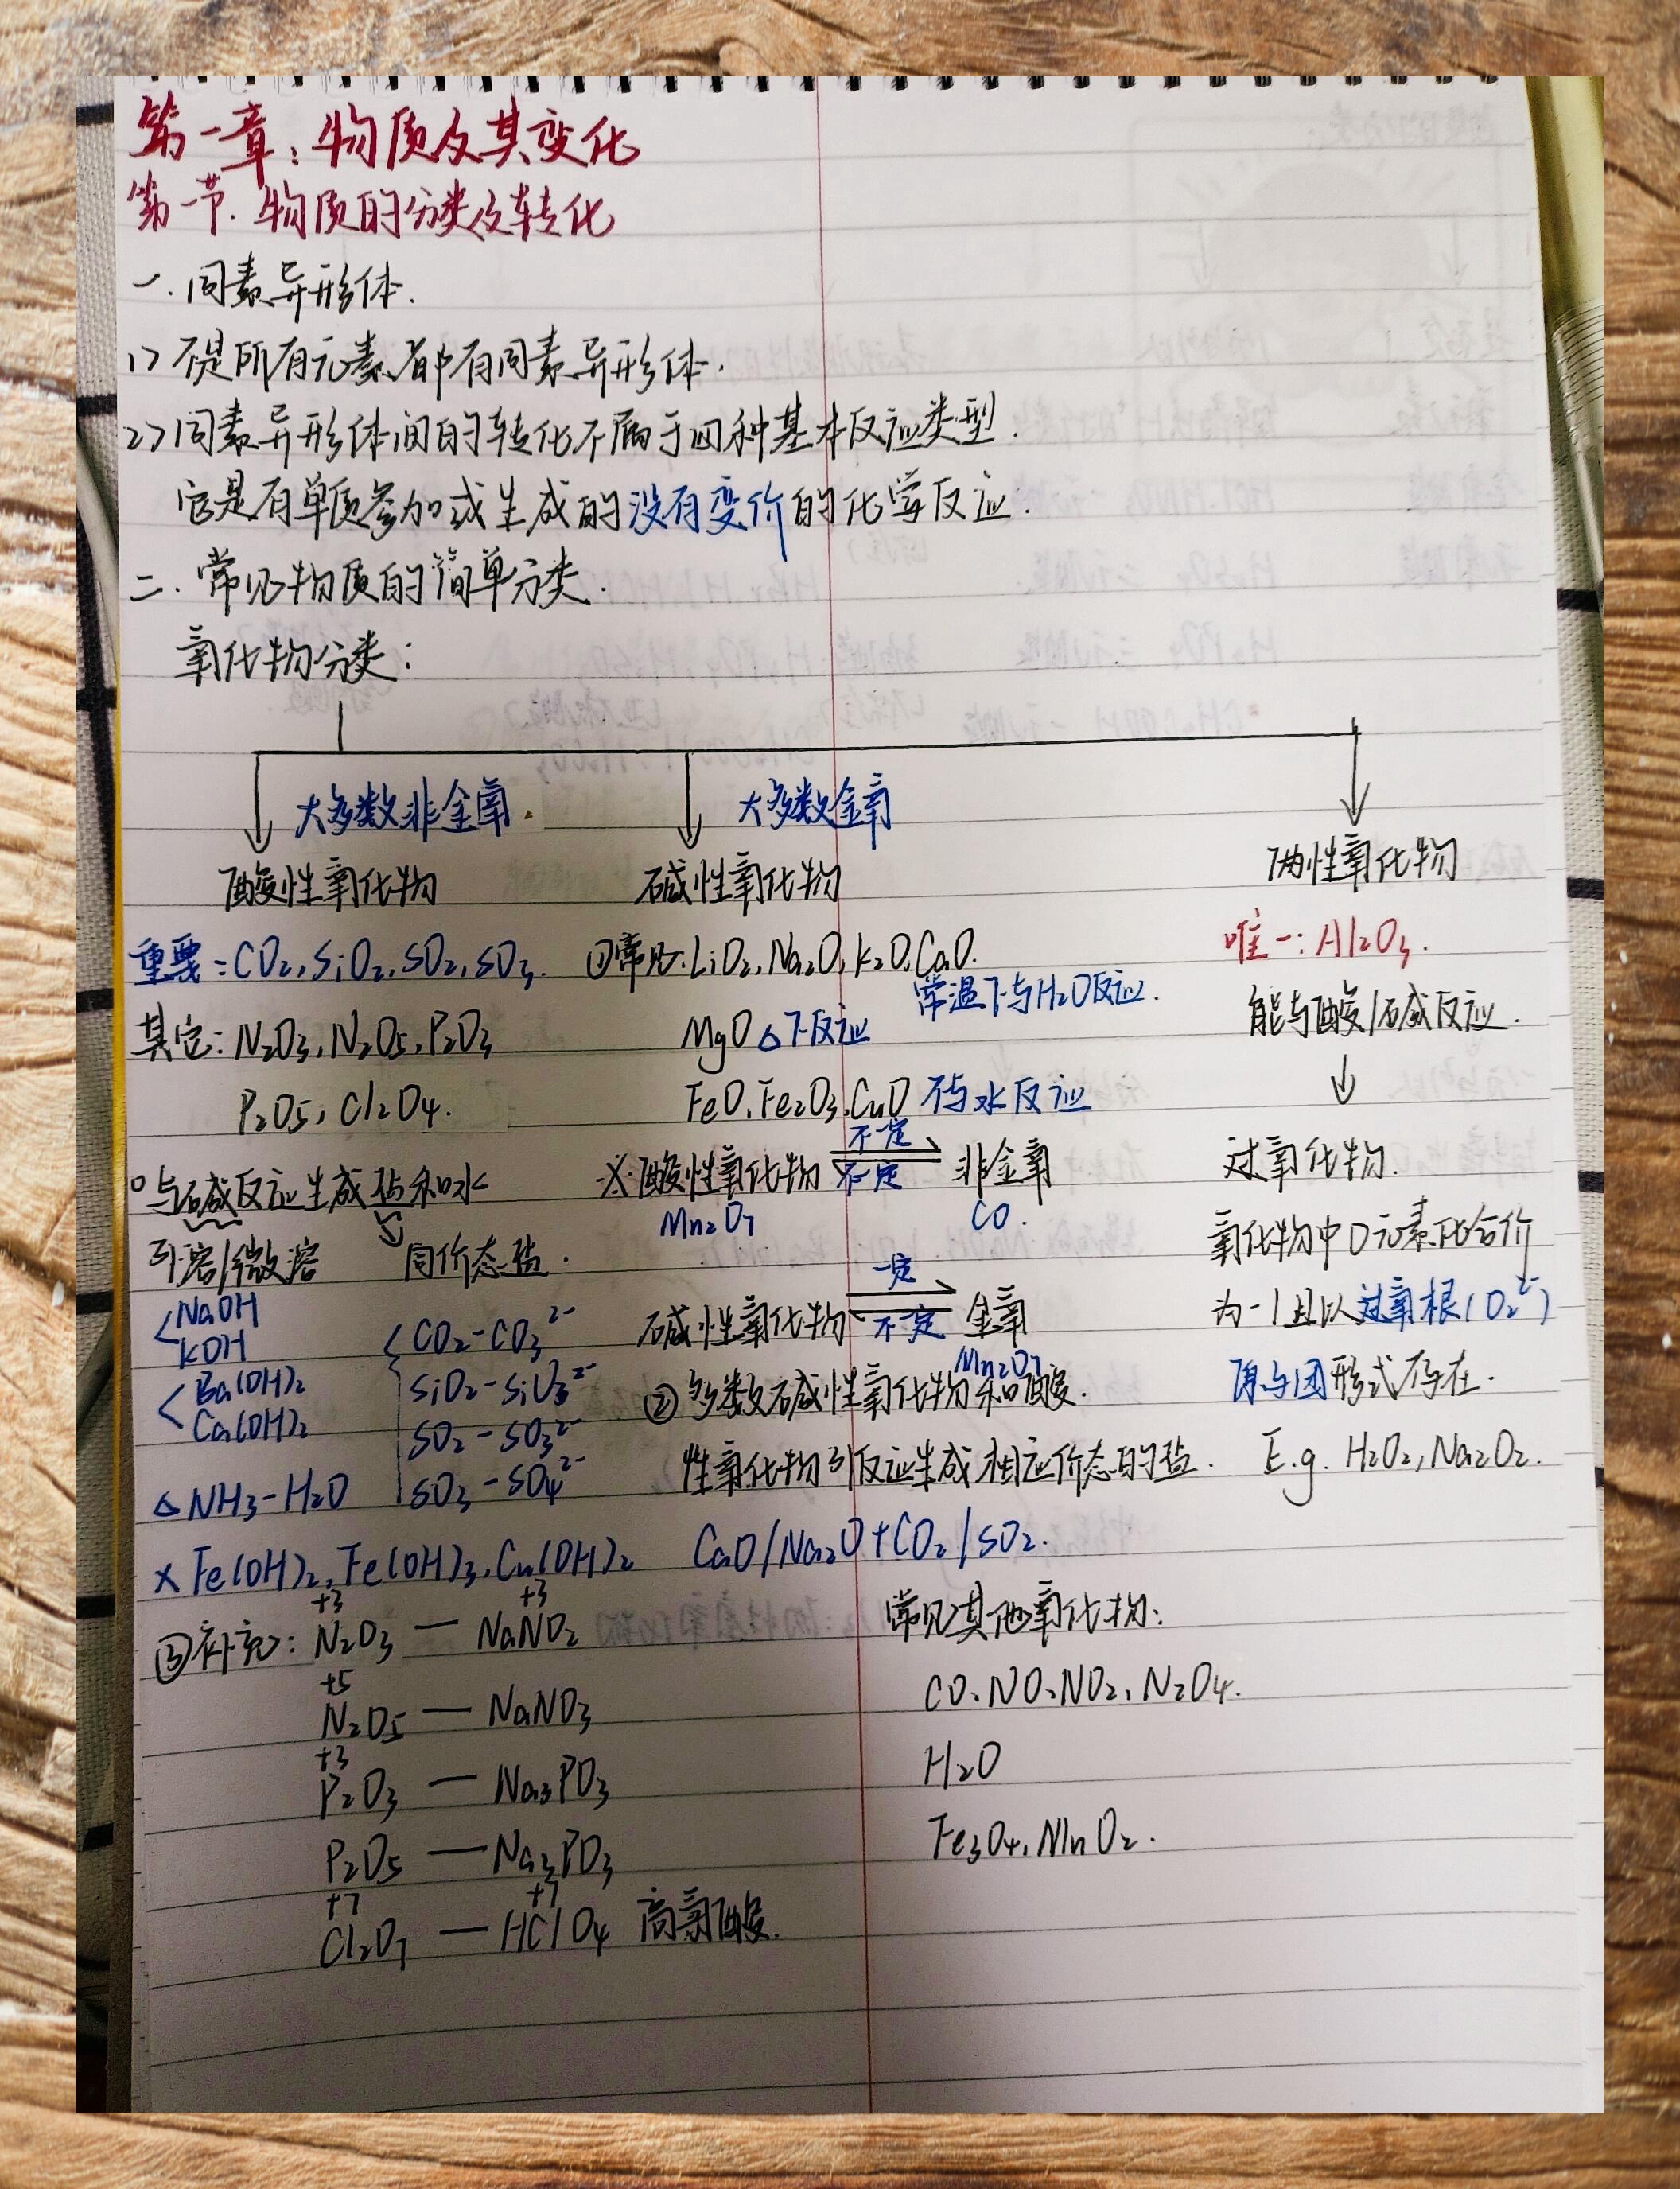 第一章：物质及其变化
第一节.物质的分类及转化
一.同素异形体.
1>不是所有元素都有同素异形体.
2>同素异形体间的转化不属于四种基本反应类型.
它是有单质参加或生成的没有变价的化学反应.
二.常见物质的简单分类.
氧化物分类：
大多数非金氧.
大多数金氧
酸性氧化物
碱性氧化物
两性氧化物
重要：CO₂,SiO₂,SO₂,SO₃.
其它：N₂O₃,N₂O₅,P₂O₃
P₂O₅,Cl₂O₄.
①与碱反应生成盐和水
可溶/微溶 同价态盐.
NaOH
KOH
Ba(OH)₂
Ca(OH)₂
△NH₃-H₂O
CO₂-CO₃²⁻
SiO₂-SiO₃²⁻
SO₂-SO₃²⁻
SO₃-SO₄²⁻
×Fe(OH)₂,Fe(OH)₃,Cu(OH)₂
③补充：
+3 +3
N₂O₃—NaNO₂
+5
N₂O₅—NaNO₃
+3
P₂O₃—Na₃PO₃
P₂O₅—Na₃PO₃
+7 +7
Cl₂O₇—HClO₄ 高氯酸.
①常见:LiO₂,Na₂O,K₂O,CaO.
常温下与H₂O反应.
MgO△下反应
FeO,Fe₂O₃,CuO不与水反应
※酸性氧化物 不一定 不一定 非金氧
Mn₂O₇ CO.
碱性氧化物 一定 不一定 金氧
Mn₂O₇
②多数碱性氧化物和酸.
性氧化物可反应生成相应价态的盐.
CaO/Na₂O+CO₂/SO₂.
唯一:Al₂O₃.
能与酸/碱反应.
过氧化物.
氧化物中O元素化合价
为-1且以过氧根(O₂²⁻)
原子团形式存在.
E.g. H₂O₂,Na₂O₂.
常见其他氧化物：
CO、NO、NO₂,N₂O₄.
H₂O
Fe₃O₄,MnO₂.